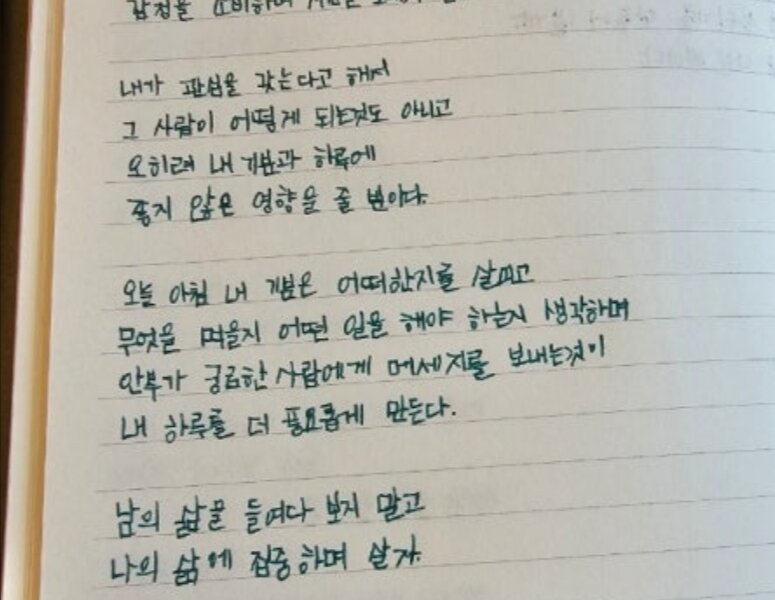 감정을 소비하며
내가 관심을 갖는다고 해서
그 사람이 어떻게 되는것도 아니고
오히려 내 기분과 하루에
좋지 않은 영향을 줄 뿐이다.
오늘 아침 내 기분은 어떠한지를 살피고
무엇을 먹을지 어떤 일을 해야 하는지 생각하며
안부가 궁금한 사람에게 메세지를 보내는것이
내 하루를 더 풍요롭게 만든다.
남의 삶을 들여다 보지 말고
나의 삶에 집중하며 살자.